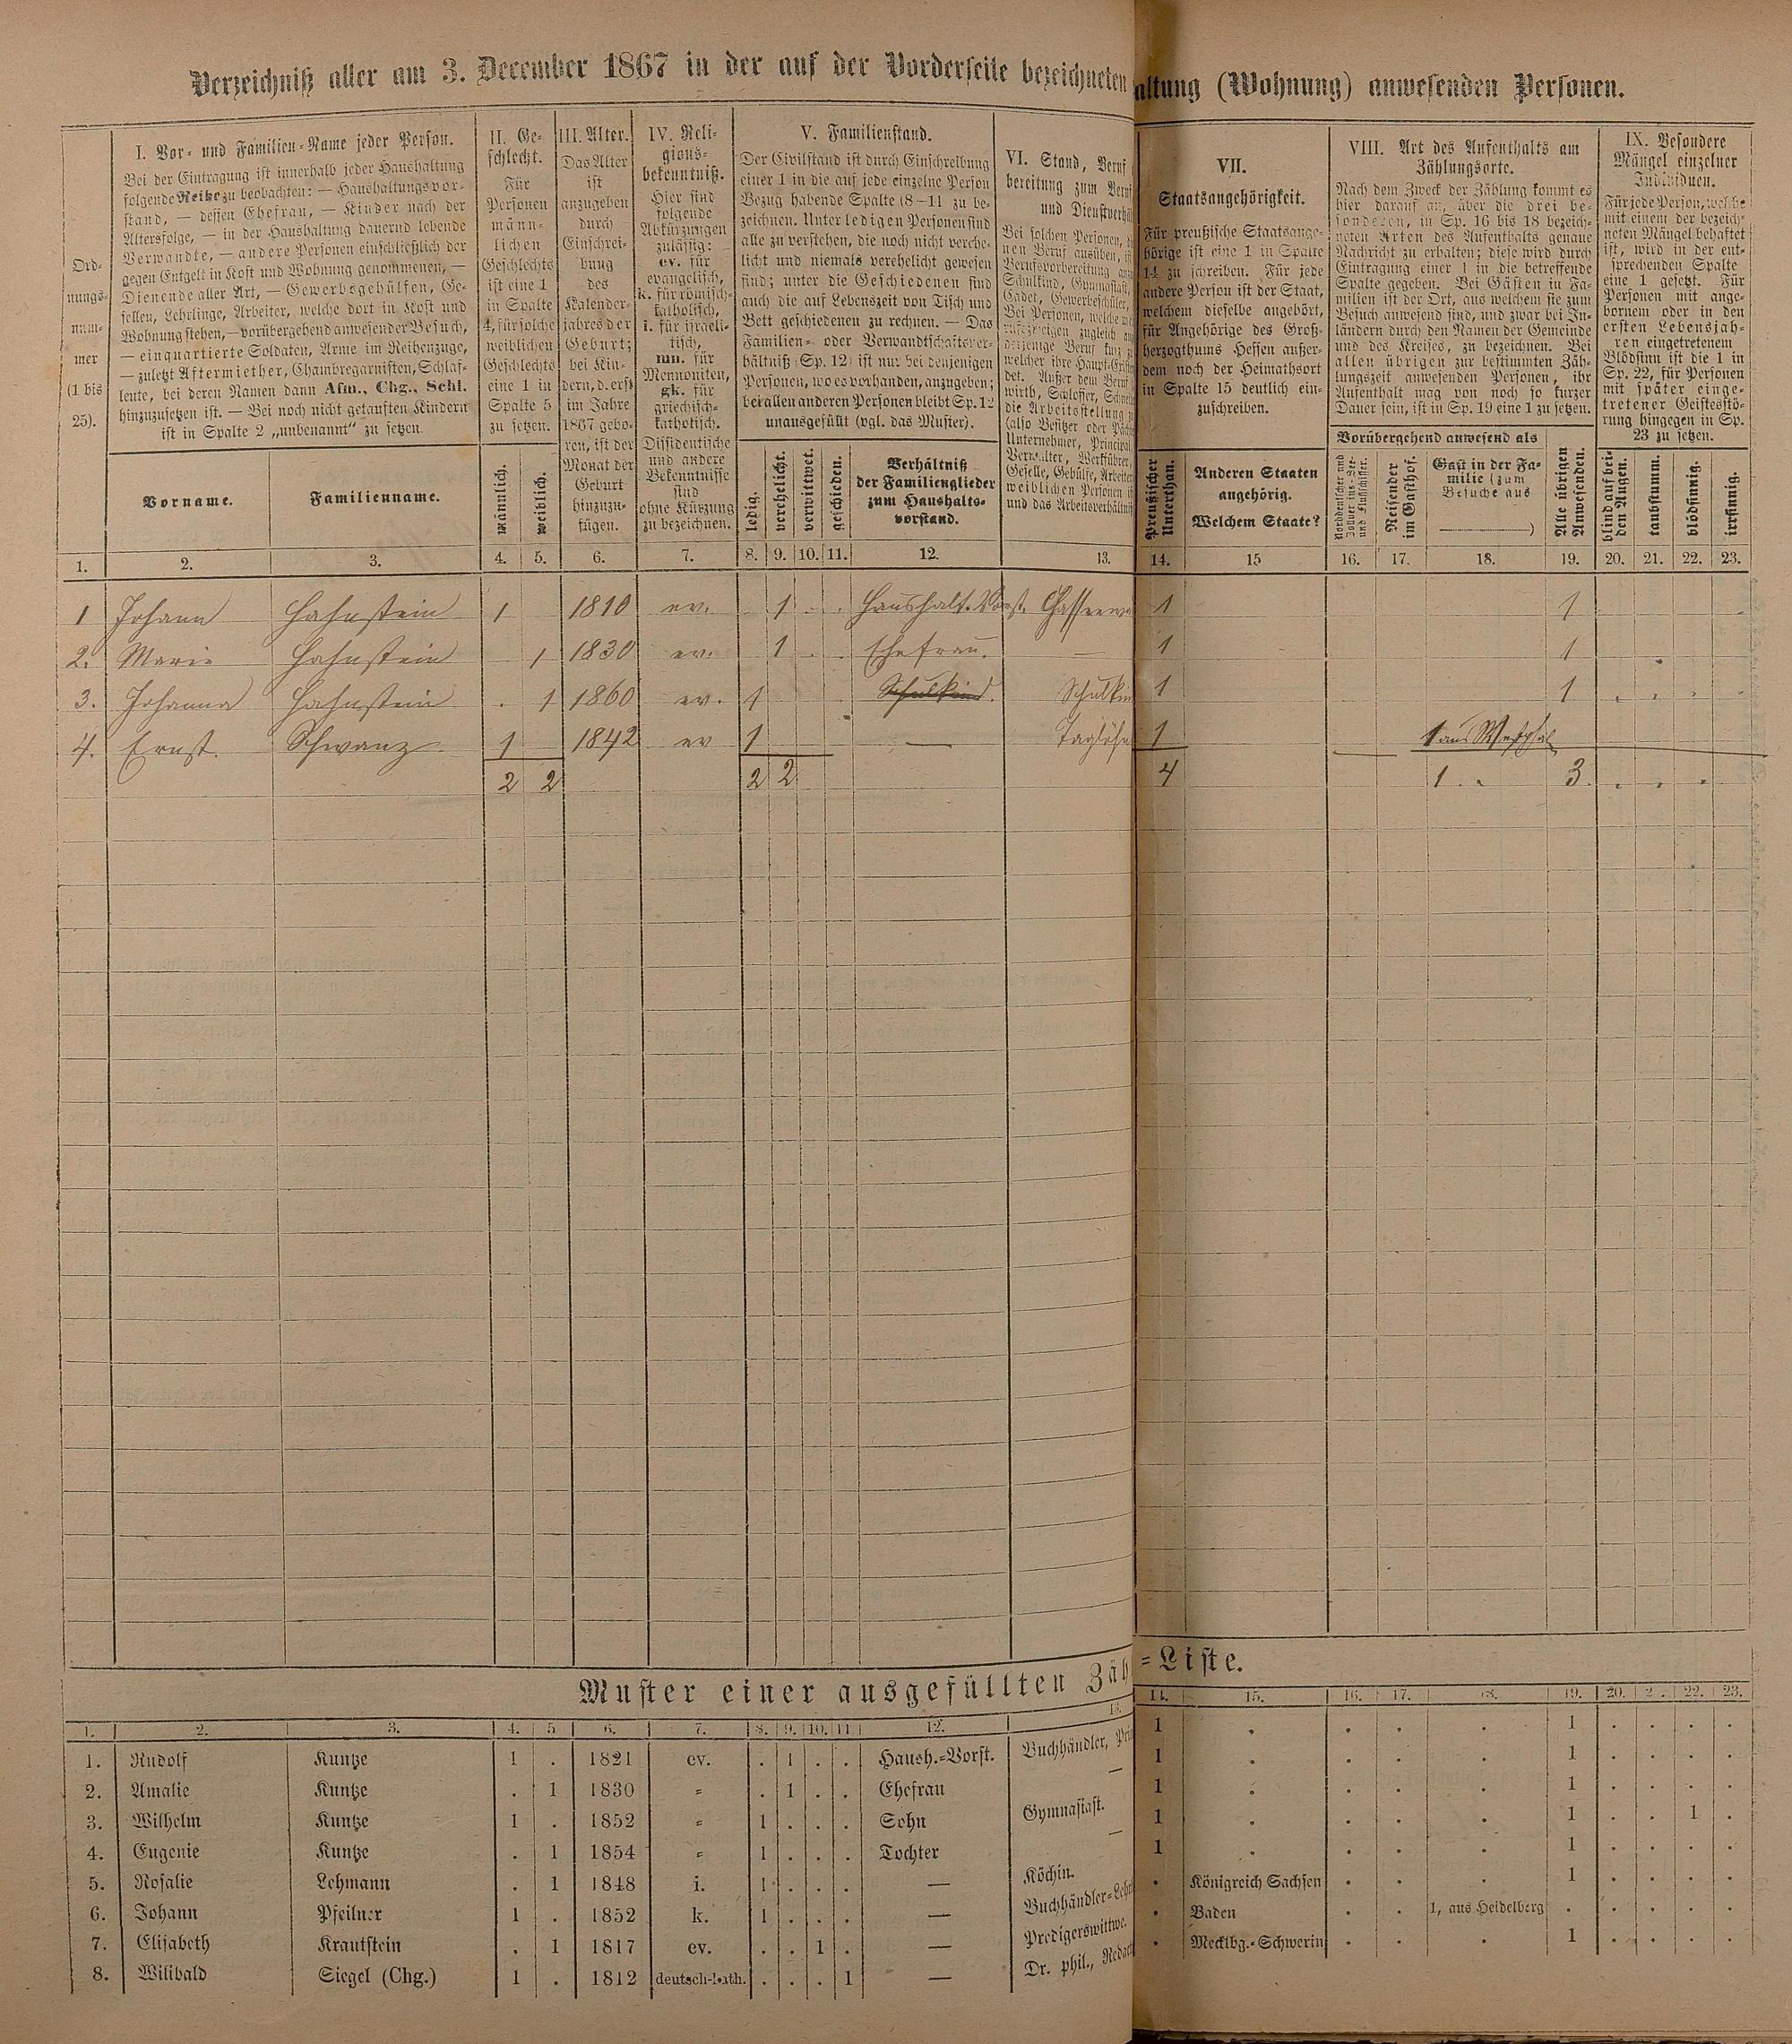 Verzeichniß aller am 3. December 1867 in der auf der Vorderseite bezeichneten
altung (Wohnung) anwesenden Personen.
Ord-
nungs-
num-
mer
(1 bis
25).
I. Vor- und Familien-Name jeder Person.
Bei der Eintragung ist innerhalb jeder Haushaltung
folgende Reihe zu beobachten: — Haushaltungsvor-
stand, — dessen Ehefrau, — Kinder nach der
Altersfolge, — in der Haushaltung dauernd lebende
Verwandte, — andere Personen einschließlich der
gegen Entgelt in Kost und Wohnung genommenen, —
Dienende aller Art, — Gewerbsgehülfen, Ge-
sellen, Lehrlinge, Arbeiter, welche dort in Kost und
Wohnung stehen, — vorübergehend anwesender Besuch,
— einquartierte Soldaten, Arme im Reihenzuge,
— zuletzt Aftermiether, Chambregarnisten, Schlaf-
leute, bei deren Namen dann Afm., Chg., Schl.
hinzuzusetzen ist. — Bei noch nicht getauften Kindern
ist in Spalte 2 „unbenannt“ zu setzen.
Vorname.
Familienname.
II. Ge-
schlecht.
Für
Personen
männ-
lichen
Geschlechts
ist eine 1
in Spalte
4, für solche
weiblichen
Geschlechts
eine 1 in
Spalte 5
zu setzen.
männlich.
weiblich.
III. Alter.
Das Alter
ist
anzugeben
durch
Einschrei-
bung
des
Kalender-
jahres der
Geburt;
bei Kin-
dern, d. erst
im Jahre
1867 gebo-
ren, ist der
Monat der
Geburt
hinzuzu-
fügen.
IV. Reli-
gions-
bekenntniß.
Hier sind
folgende
Abkürzungen
zulässig:
ev. für
evangelisch,
k. für römisch-
katholisch,
i. für israeli-
tisch,
mn. für
Mennoniten,
gk. für
griechisch-
katholisch.
Dissidentische
und andere
Bekenntnisse
sind
ohne Kürzung
zu bezeichnen.
V. Familienstand.
Der Civilstand ist durch Einschreibung
einer 1 in die auf jede einzelne Person
Bezug habende Spalte (8–11) zu be-
zeichnen. Unter ledigen Personen sind
alle zu verstehen, die noch nicht verehe-
licht und niemals verehelicht gewesen
sind; unter die Geschiedenen sind
auch die auf Lebenszeit von Tisch und
Bett geschiedenen zu rechnen. — Das
Familien- oder Verwandtschaftsver-
hältniß (Sp. 12) ist nur bei denjenigen
Personen, wo es vorhanden, anzugeben;
bei allen anderen Personen bleibt Sp. 12
unausgefüllt (vgl. das Muster).
ledig.
verehelicht.
verwittwet.
geschieden.
Verhältniß
der Familienglieder
zum Haushalts-
vorstand.
VI. Stand, Beruf
bereitung zum Beruf
und Dienstverhä
Bei solchen Personen, d
nen Beruf ausüben, ist
Berufsvorbereitung anz
Schulkind, Gymnasiast,
Cadet, Gewerbeschüler,
Bei Personen, welche me
rufszweigen zugleich an
derjenige Beruf kurz z
welcher ihre Haupt-Existe
det. Außer dem Beruf
wirth, Schlosser, Schneid
die Arbeitsstellung z
(also Besitzer oder Päch
Unternehmer, Principal,
Verwalter, Werkführer,
Geselle, Gehülfe, Arbeiter
weiblichen Personen is
und das Arbeitsverhältniß
VII.
Staatsangehörigkeit.
Für preußische Staatsange-
hörige ist eine 1 in Spalte
14 zu schreiben. Für jede
andere Person ist der Staat,
welchem dieselbe angehört,
für Angehörige des Groß-
herzogthums Hessen außer-
dem noch der Heimathsort
in Spalte 15 deutlich ein-
zuschreiben.
Preußischer
Unterthan.
Anderen Staaten
angehörig.
Welchem Staate?
VIII. Art des Aufenthalts am
Zählungsorte.
Nach dem Zweck der Zählung kommt es
hier darauf an, über die drei be-
sonderen, in Sp. 16 bis 18 bezeich-
neten Arten des Aufenthalts genaue
Nachricht zu erhalten; diese wird durch
Eintragung einer 1 in die betreffende
Spalte gegeben. Bei Gästen in Fa-
milien ist der Ort, aus welchem sie zum
Besuch anwesend sind, und zwar bei In-
ländern durch den Namen der Gemeinde
und des Kreises, zu bezeichnen. Bei
allen übrigen zur bestimmten Zäh-
lungszeit anwesenden Personen, ihr
Aufenthalt mag von noch so kurzer
Dauer sein, ist in Sp. 19 eine 1 zu setzen.
Vorübergehend anwesend als
Norddeutscher und
Zollvereins-See-
und Flußschiffer.
Reisender
im Gasthof.
Gast in der Fa-
milie (zum
Besuche aus
)
Alle übrigen
Anwesenden.
IX. Besondere
Mängel einzelner
Individuen.
Für jede Person, welche
mit einem der bezeich-
neten Mängel behaftet
ist, wird in der ent-
sprechenden Spalte
eine 1 gesetzt. Für
Personen mit ange-
bornem oder in den
ersten Lebensjah-
ren eingetretenem
Blödsinn ist die 1 in
Sp. 22, für Personen
mit später einge-
tretener Geistesstö-
rung hingegen in Sp.
23 zu setzen.
blind auf bei-
den Augen.
taubstumm.
blödsinnig.
irrsinnig.
1. 2. 3. 4. 5. 6. 7. 8. 9. 10. 11. 12. 13. 14. 15 16. 17. 18. 19. 20. 21. 22. 23.
1 Johann Hahnstein 1 1810 ev. 1 . . Haushalt. Vorst. 1 1
2. Marie Hahnstein 1 1830 ev. 1 . . Ehefrau. — 1 1
3. Johanna Hahnstein . 1 1860 ev. 1 Schulkind. Schulkin 1 1
4. Ernst. Schwanz 1 1842 ev 1 — Taglöhn 1 1 aus Westphal
2 2 2 2 4 1 3
Muster einer ausgefüllten Zäh
=Liste.
1. 2. 3. 4. 5 6. 7. 8. 9. 10. 11 12. 13. 14. 15. 16. 17. 18. 19. 20. 2 . 22. 23.
1. Rudolf Kuntze 1 . 1821 ev. . 1 . . Haush.=Vorst. Buchhändler, Prin 1 . . . . 1 . . . .
2. Amalie Kuntze . 1 1830 = . 1 . . Ehefrau — 1 . . . . 1 . . . .
3. Wilhelm Kuntze 1 . 1852 = 1 . . . Sohn Gymnasiast. 1 . . . . 1 . . . .
4. Eugenie Kuntze . 1 1854 = 1 . . . Tochter — 1 . . . . 1 . . 1 .
5. Rosalie Lehmann . 1 1848 i. 1 . . . — Köchin. 1 . . . . 1 . . . .
6. Johann Pfeilner 1 . 1852 k. 1 . . . — Buchhändler=Lehr . Königreich Sachsen . . . 1 . . . .
7. Elisabeth Krautstein . 1 1817 ev. . . 1 . — Predigerswittwe. . Baden . . 1, aus Heidelberg . . . . .
8. Wilibald Siegel (Chg.) 1 . 1812 deutsch-kath. . . . 1 — Dr. phil., Redact . Mecklbg.=Schwerin . . . 1 . . . .